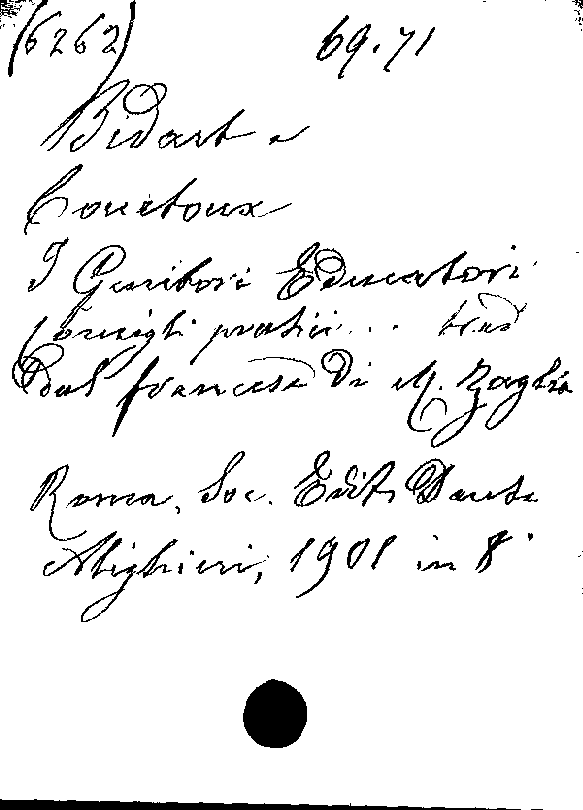 (6262) 69.71
Bidart e
Courtoux
I Genitori Educatori
Consigli pratici ... trad
dal francese di M. Zaglia
Roma, Soc. Edit. Dante
Alighieri, 1901 in 8°